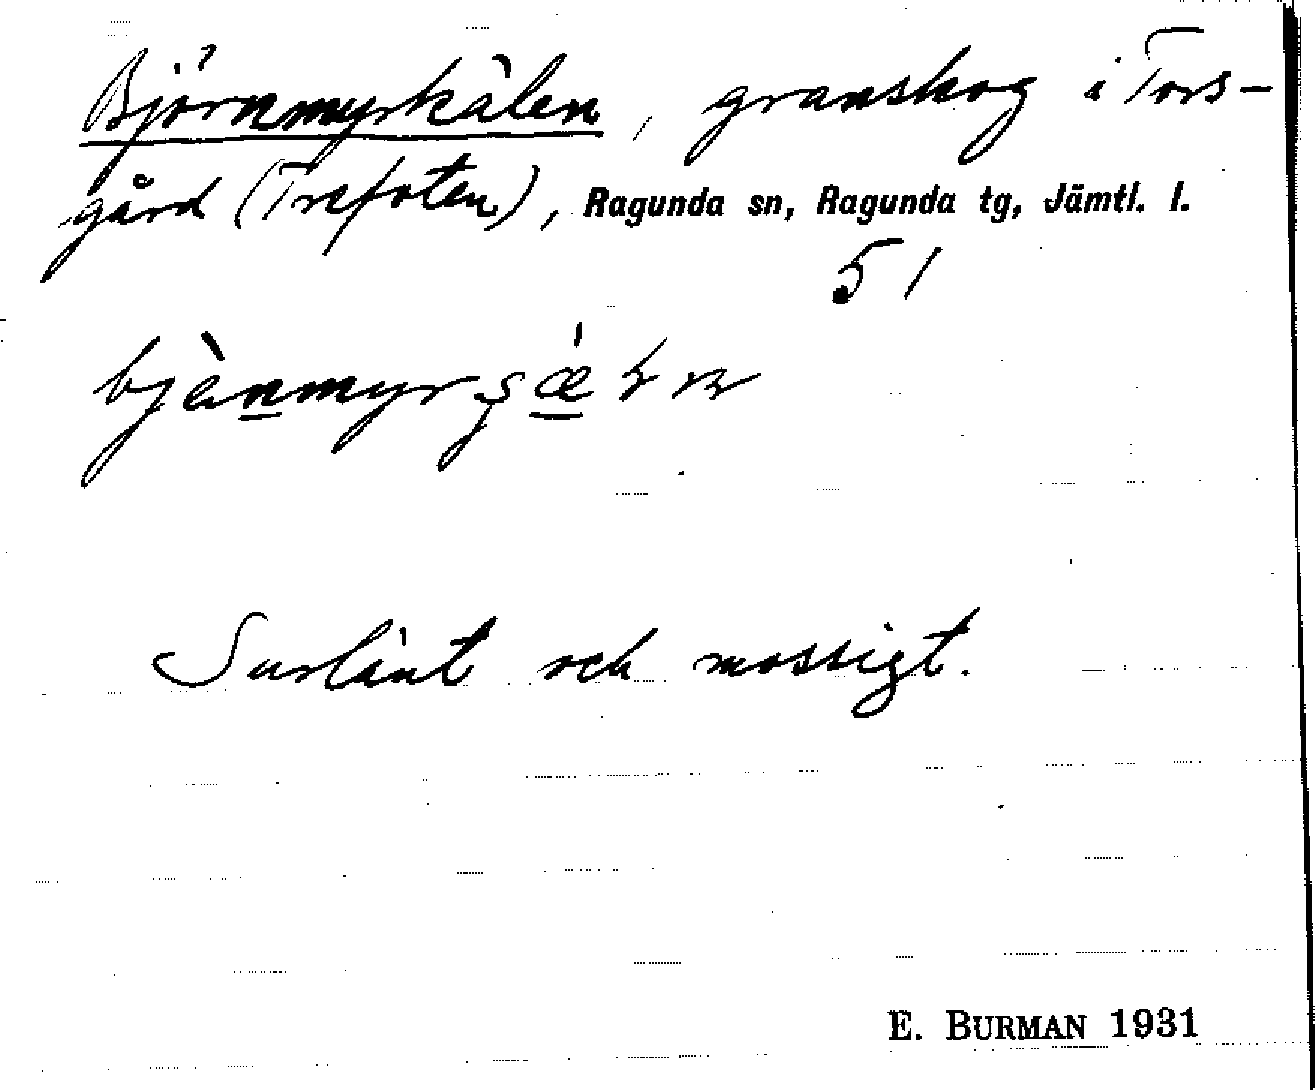 Björnmyrkälen, granskog i Tors-
gård (Trefoten), Ragunda sn, Ragunda tg, Jämtl. l.
51
Surlänt och mossigt.
E. BURMAN 1931